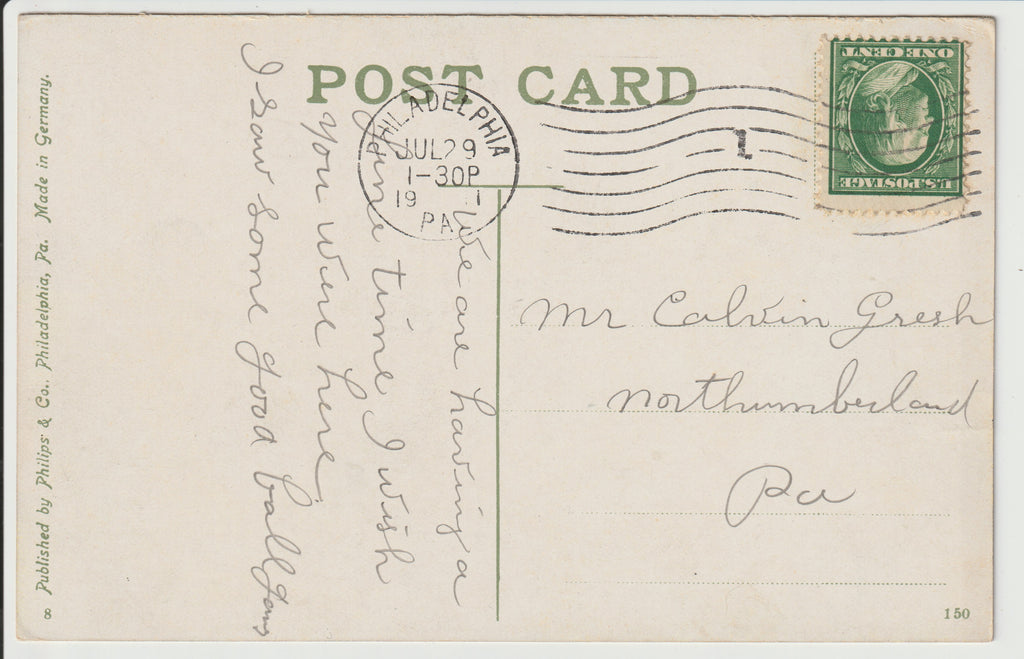 POST CARD
PHILADELPHIA
JUL 29
1-30P
19 1
PA
1
ONE CENT
U.S. POSTAGE
We are having a
fine time I wish
you were here
I saw some good ball
Mr Calvin Gresh
Northumberland
Pa
Published by Philips & Co., Philadelphia, Pa. Made in Germany.
8
150